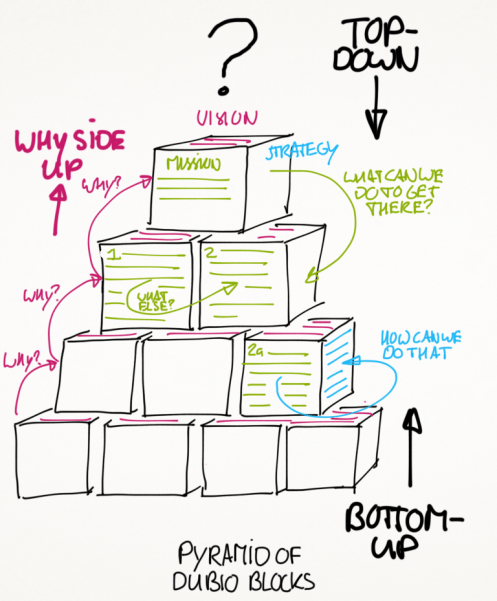 ?
TOP-
DOWN
VISION
WHY SIDE
UP
MISSION
STRATEGY
WHY?
WHAT CAN WE
DO TO GET
THERE?
1
2
WHY?
WHAT
ELSE?
WHY?
2a
HOW CAN WE
DO THAT
BOTTOM-
UP
PYRAMID OF
DUBIO BLOCKS